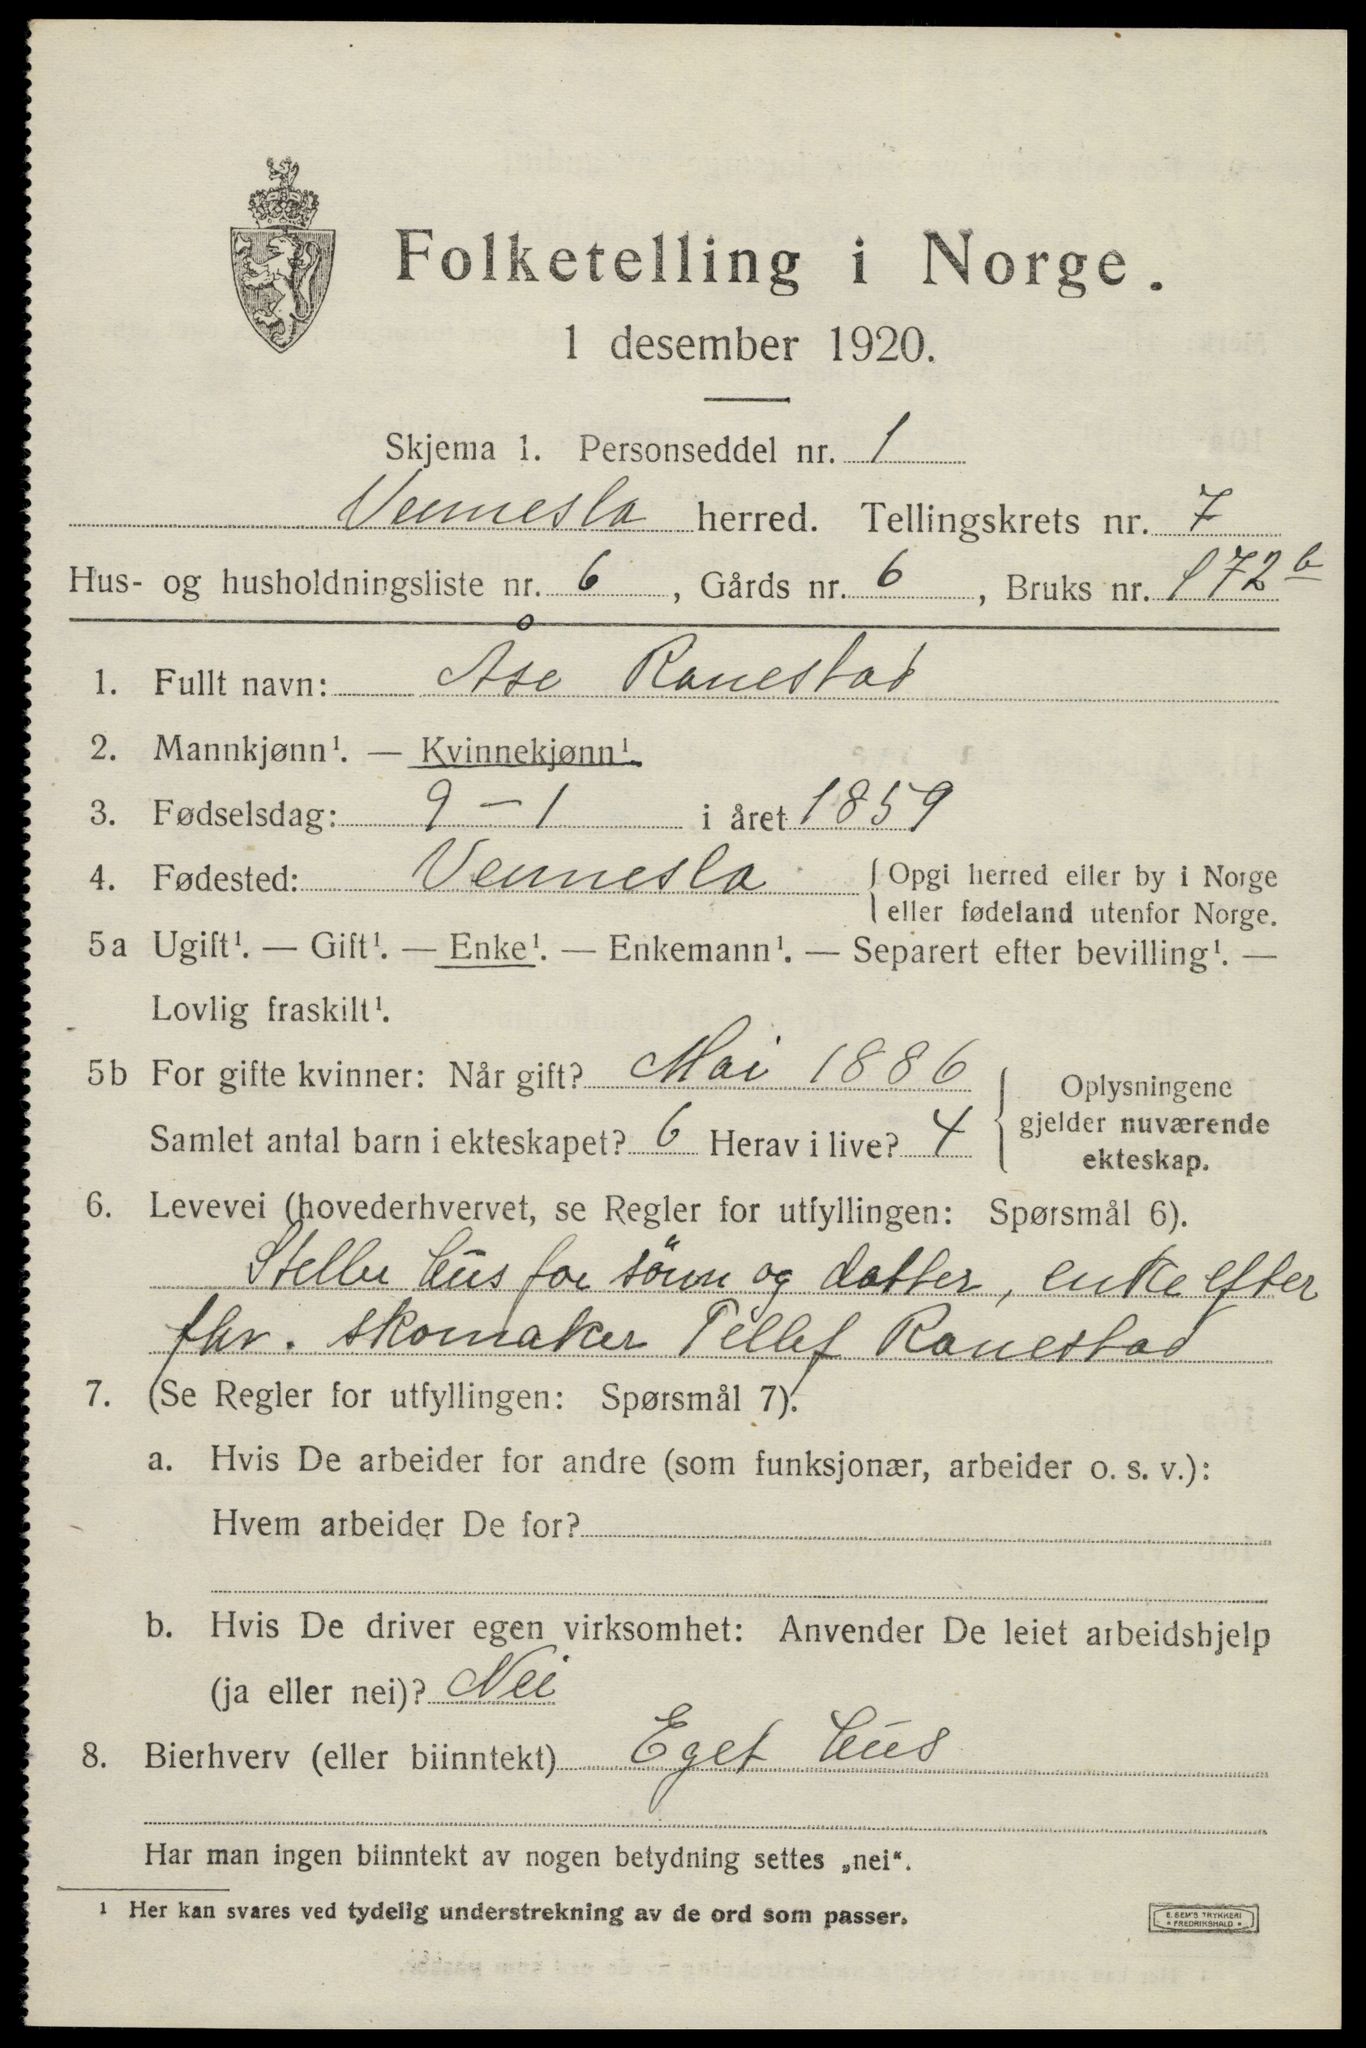 Folketelling i Norge.
1 desember 1920.
Skjema 1. Personseddel nr. 1
Vennesla herred. Tellingskrets nr. 7
Hus- og husholdningsliste nr. 6, Gårds nr. 6, Bruks nr. 172 b
1. Fullt navn: Åse Ranestad
2. Mannkjønn¹. — Kvinnekjønn¹.
3. Fødselsdag: 9 – 1 i året 1859
4. Fødested: Vennesla { Opgi herred eller by i Norge
eller fødeland utenfor Norge.
5a Ugift¹. — Gift¹. — Enke¹. — Enkemann¹. — Separert efter bevilling¹. —
Lovlig fraskilt¹.
5b For gifte kvinner: Når gift? Mai 1886
Samlet antal barn i ekteskapet? 6 Herav i live? 4
Oplysningene
gjelder nuværende
ekteskap.
6. Levevei (hovederhvervet, se Regler for utfyllingen: Spørsmål 6).
Steller hus for sönn og datter, enke efter
fhv. skomaker Tellef Ranestad
7. (Se Regler for utfyllingen: Spørsmål 7).
a. Hvis De arbeider for andre (som funksjonær, arbeider o. s. v.):
Hvem arbeider De for?
b. Hvis De driver egen virksomhet: Anvender De leiet arbeidshjelp
(ja eller nei)? Nei
8. Bierhverv (eller biinntekt) Eget hus
Har man ingen biinntekt av nogen betydning settes „nei“.
¹ Her kan svares ved tydelig understrekning av de ord som passer.
E. SEM'S TRYKKERI
* FREDRIKSHALD *